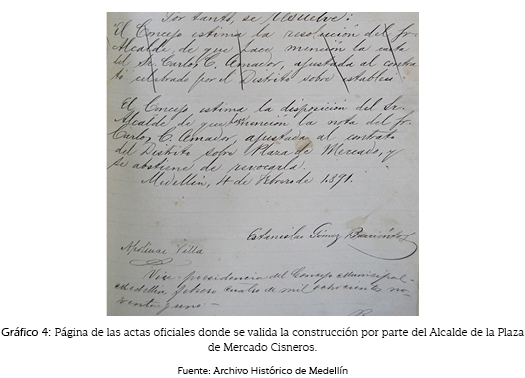 Por tanto, se resuelve:
El Concejo estima la resolución del Sr.
Alcalde, de que hace mención la nota
del Sr. Carlos C. Amador, ajustada al contra
to celebrado por el Distrito sobre establec
El Concejo estima la disposición del Sr.
Alcalde de que mención la nota del Sr.
Carlos C. Amador, ajustada al contrato
del Distrito sobre Plaza de Mercado, y
se abstiene de revocarla.
Medellín, 4 de Febrero de 1891.
Estanislao Gómez Barrientos
Molina Villa
Vice-presidencia del Concejo Municipal-
Medellín febrero cuatro de mil ochocientos no-
venta y uno-
Gráfico 4: Página de las actas oficiales donde se valida la construcción por parte del Alcalde de la Plaza
de Mercado Cisneros.
Fuente: Archivo Histórico de Medellín